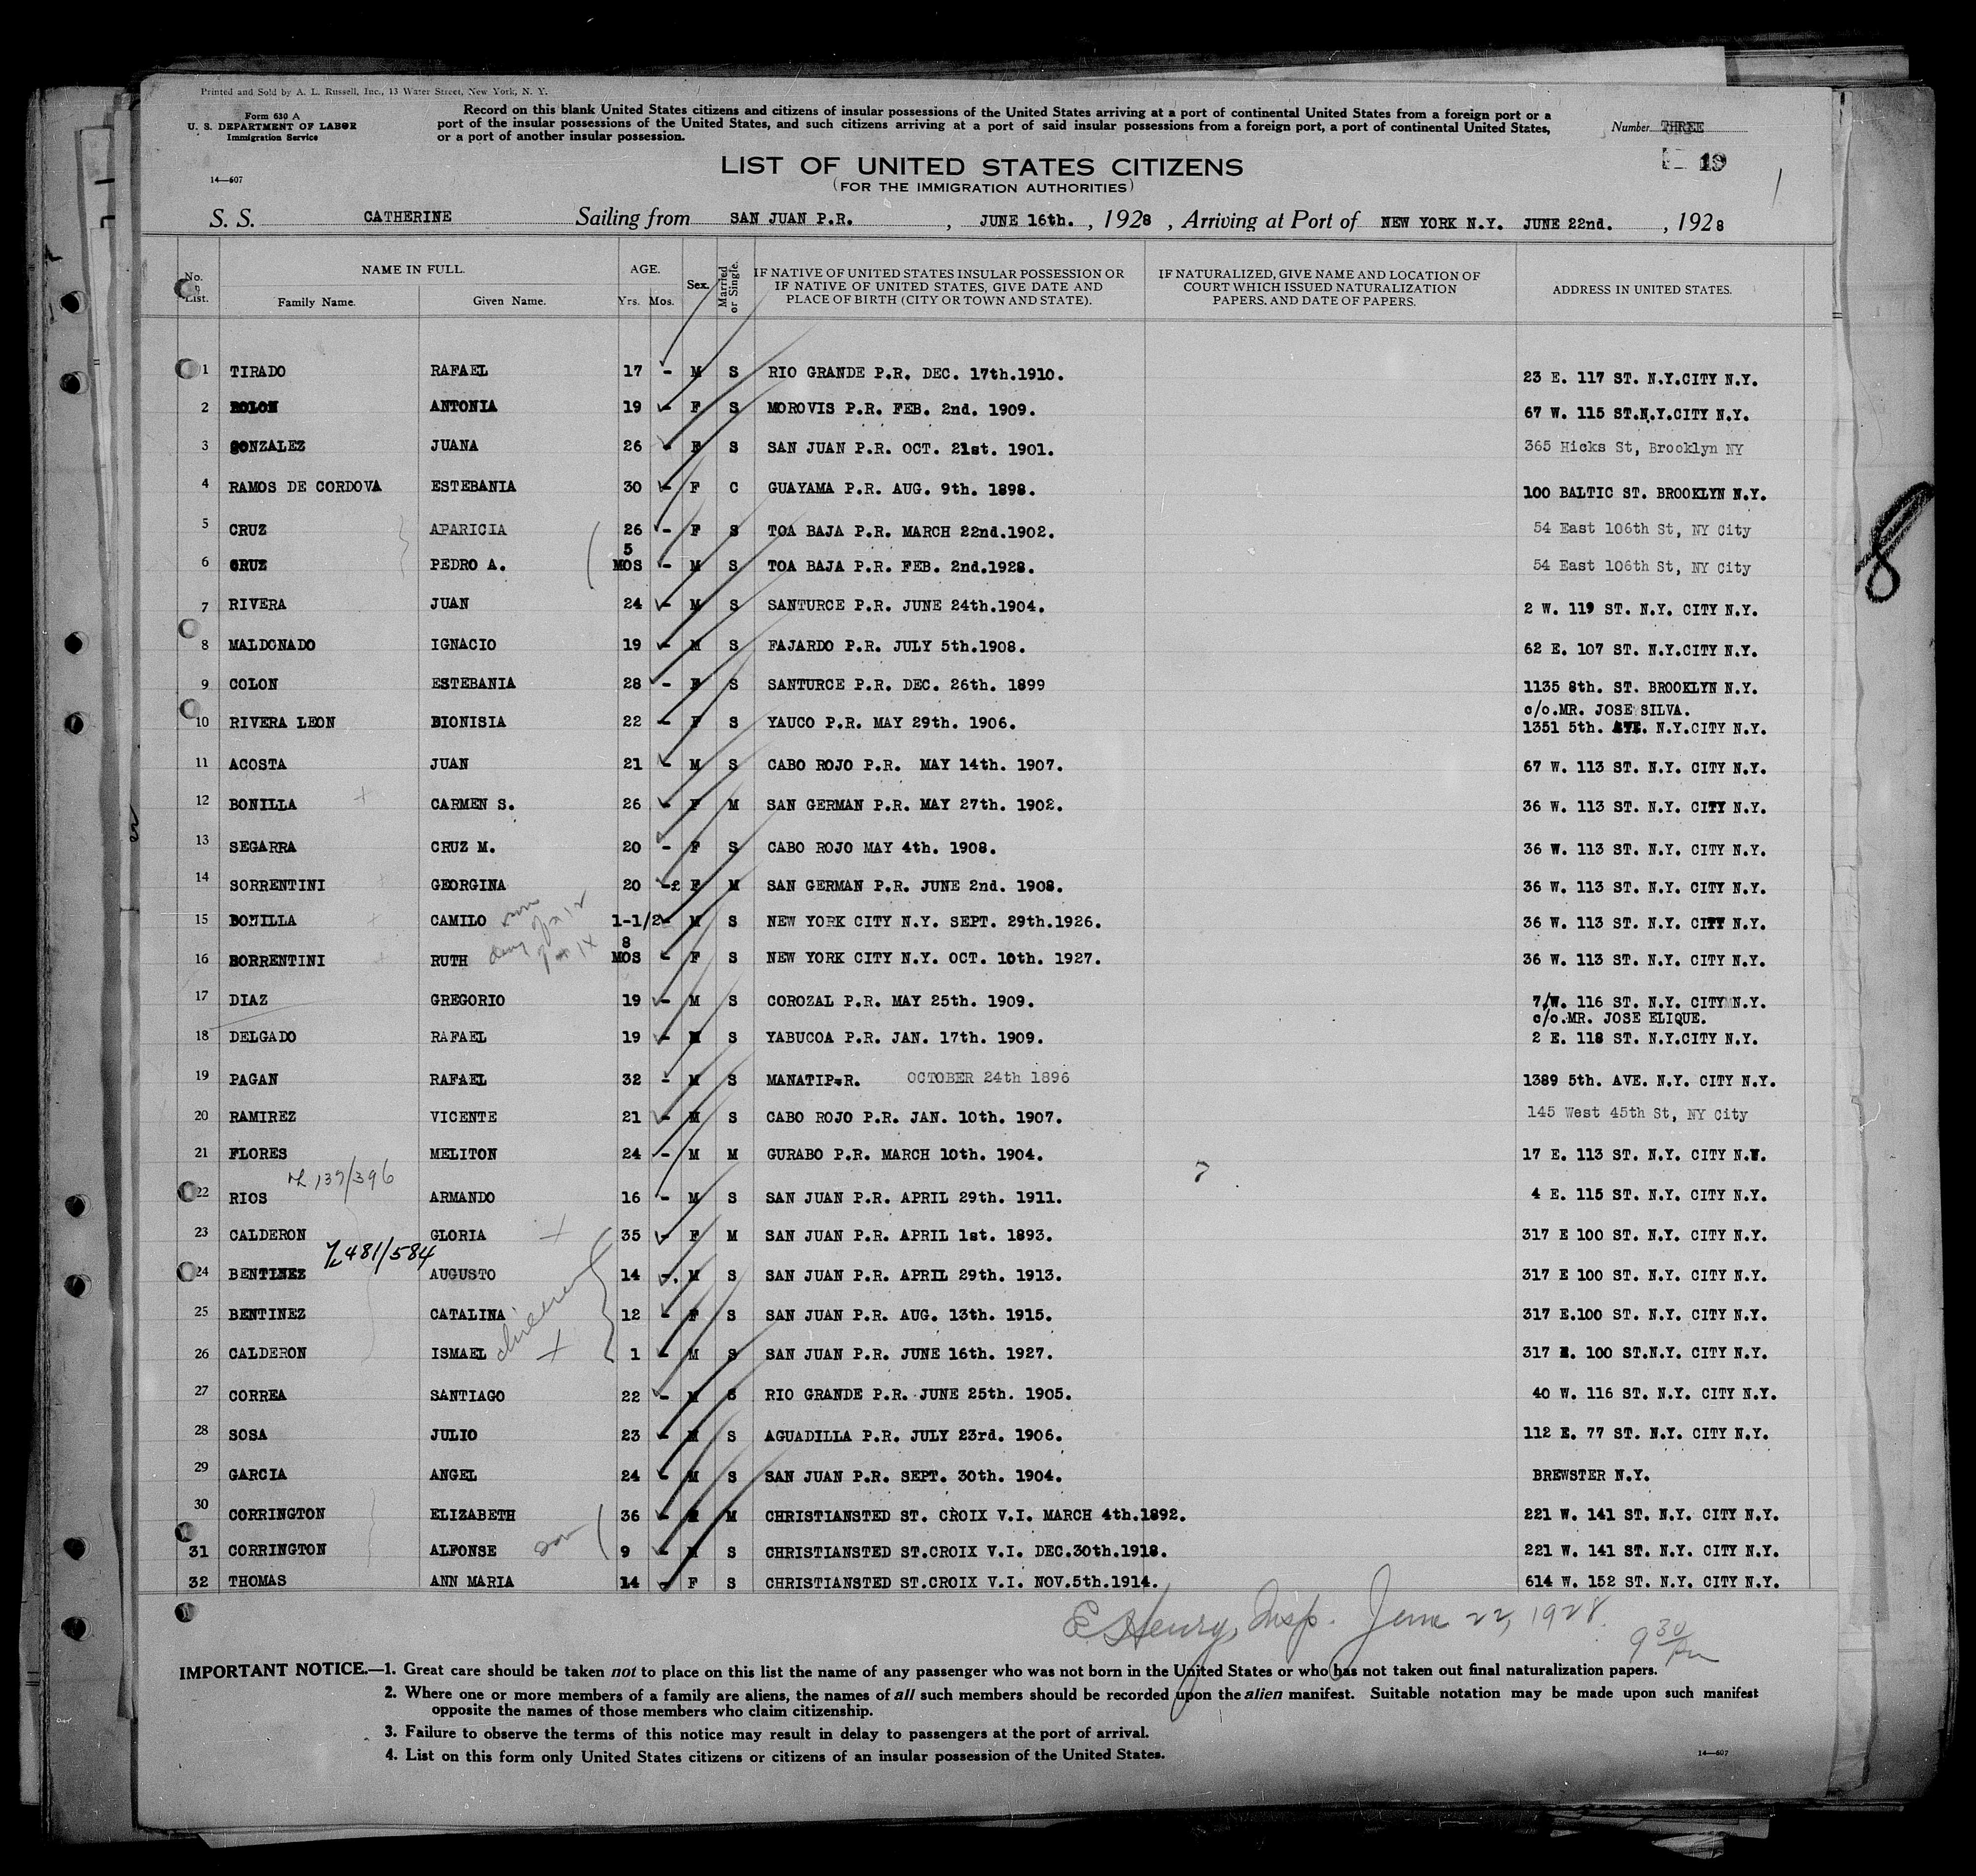 Printed and Sold by A. L. Russell, Inc., 13 Water Street, New York, N. Y.
Form 630 A
U. S. DEPARTMENT OF LABOR
Immigration Service
14—607
Record on this blank United States citizens and citizens of insular possessions of the United States arriving at a port of continental United States from a foreign port or a
port of the insular possessions of the United States, and such citizens arriving at a port of said insular possessions from a foreign port, a port of continental United States,
or a port of another insular possession.
Number THREE
19
LIST OF UNITED STATES CITIZENS
(FOR THE IMMIGRATION AUTHORITIES)
S. S. CATHERINE Sailing from SAN JUAN P.R. , JUNE 16th. , 1928 , Arriving at Port of NEW YORK N.Y. JUNE 22nd. , 1928
No. List. NAME IN FULL. Family Name. Given Name. AGE. Yrs. Mos. Sex. Married or Single. IF NATIVE OF UNITED STATES INSULAR POSSESSION OR IF NATIVE OF UNITED STATES, GIVE DATE AND PLACE OF BIRTH (CITY OR TOWN AND STATE). IF NATURALIZED, GIVE NAME AND LOCATION OF COURT WHICH ISSUED NATURALIZATION PAPERS, AND DATE OF PAPERS. ADDRESS IN UNITED STATES.
1 TIRADO RAFAEL 17 - M S RIO GRANDE P.R. DEC. 17th.1910. 23 E. 117 ST. N.Y.CITY N.Y.
2 ROLON ANTONIA 19 - F S MOROVIS P.R. FEB. 2nd. 1909. 67 W. 115 ST.N.Y.CITY N.Y.
3 GONZALEZ JUANA 26 - F S SAN JUAN P.R. OCT. 21st. 1901. 365 Hicks St, Brooklyn NY
4 RAMOS DE CORDOVA ESTEBANIA 30 - F C GUAYAMA P.R. AUG. 9th. 1898. 100 BALTIC ST. BROOKLYN N.Y.
5 CRUZ APARICIA 26 - F S TOA BAJA P.R. MARCH 22nd.1902. 54 East 106th St, NY City
6 CRUZ PEDRO A. 5 MOS - M S TOA BAJA P.R. FEB. 2nd.1928. 54 East 106th St, NY City
7 RIVERA JUAN 24 - M S SANTURCE P.R. JUNE 24th.1904. 2 W. 119 ST. N.Y. CITY N.Y.
8 MALDONADO IGNACIO 19 - M S FAJARDO P.R. JULY 5th.1908. 62 E. 107 ST. N.Y.CITY N.Y.
9 COLON ESTEBANIA 28 - F S SANTURCE P.R. DEC. 26th. 1899 1135 8th. ST. BROOKLYN N.Y.
c/o.MR. JOSE SILVA.
10 RIVERA LEON DIONISIA 22 - F S YAUCO P.R. MAY 29th. 1906. 1351 5th. AVE. N.Y.CITY N.Y.
11 ACOSTA JUAN 21 - M S CABO ROJO P.R. MAY 14th. 1907. 67 W. 113 ST. N.Y. CITY N.Y.
12 BONILLA CARMEN S. 26 - F M SAN GERMAN P.R. MAY 27th. 1902. 36 W. 113 ST. N.Y. CITY N.Y.
13 SEGARRA CRUZ M. 20 - F S CABO ROJO MAY 4th. 1908. 36 W. 113 ST. N.Y. CITY N.Y.
14 SORRENTINI GEORGINA 20 - F M SAN GERMAN P.R. JUNE 2nd. 1908. 36 W. 113 ST. N.Y. CITY N.Y.
15 BONILLA CAMILO son of #12 1-1/2- M S NEW YORK CITY N.Y. SEPT. 29th.1926. 36 W. 113 ST. N.Y. CITY N.Y.
16 BORRENTINI RUTH 8 MOS - F S NEW YORK CITY N.Y. OCT. 10th. 1927. 36 W. 113 ST. N.Y. CITY N.Y.
17 DIAZ GREGORIO 19 - M S COROZAL P.R. MAY 25th. 1909. 7/W. 116 ST. N.Y. CITY N.Y.
c/o.MR. JOSE ELIQUE.
18 DELGADO RAFAEL 19 - M S YABUCOA P.R. JAN. 17th. 1909. 2 E. 118 ST. N.Y.CITY N.Y.
19 PAGAN RAFAEL 32 - M S MANATI P.R. OCTOBER 24th 1896 1389 5th. AVE. N.Y. CITY N.Y.
20 RAMIREZ VICENTE 21 - M S CABO ROJO P.R. JAN. 10th. 1907. 145 West 45th St, NY City
21 FLORES MELITON 24 - M M GURABO P.R. MARCH 10th. 1904. 17 E. 113 ST. N.Y. CITY N.Y.
137/396
22 RIOS ARMANDO 16 - M S SAN JUAN P.R. APRIL 29th. 1911. 4 E. 115 ST. N.Y. CITY N.Y.
23 CALDERON GLORIA 35 - F M SAN JUAN P.R. APRIL 1st. 1893. 317 E 100 ST. N.Y. CITY N.Y.
481/584
24 BENTINEZ AUGUSTO 14 -. M S SAN JUAN P.R. APRIL 29th. 1913. 317 E 100 ST. N.Y. CITY N.Y.
25 BENTINEZ CATALINA children 12 - F S SAN JUAN P.R. AUG. 13th. 1915. 317 E.100 ST. N.Y. CITY N.Y.
26 CALDERON ISMAEL 1 - M S SAN JUAN P.R. JUNE 16th. 1927. 317 E. 100 ST.N.Y. CITY N.Y.
27 CORREA SANTIAGO 22 - M S RIO GRANDE P.R. JUNE 25th. 1905. 40 W. 116 ST. N.Y. CITY N.Y.
28 SOSA JULIO 23 - M S AGUADILLA P.R. JULY 23rd. 1906. 112 E. 77 ST. N.Y. CITY N.Y.
29 GARCIA ANGEL 24 - M S SAN JUAN P.R. SEPT. 30th. 1904. BREWSTER N.Y.
30 CORRINGTON ELIZABETH 36 - F M CHRISTIANSTED ST. CROIX V.I. MARCH 4th.1892. 221 W. 141 ST. N.Y. CITY N.Y.
31 CORRINGTON ALFONSE son 9 - M S CHRISTIANSTED ST.CROIX V.I. DEC.30th.1918. 221 W. 141 ST. N.Y. CITY N.Y.
32 THOMAS ANN MARIA 14 - F S CHRISTIANSTED ST.CROIX V.I. NOV.5th.1914. 614 W. 152 ST. N.Y. CITY N.Y.
E Henry, Insp. June 22, 1928. 9 30
IMPORTANT NOTICE.—1. Great care should be taken not to place on this list the name of any passenger who was not born in the United States or who has not taken out final naturalization papers.
2. Where one or more members of a family are aliens, the names of all such members should be recorded upon the alien manifest. Suitable notation may be made upon such manifest
opposite the names of those members who claim citizenship.
3. Failure to observe the terms of this notice may result in delay to passengers at the port of arrival.
4. List on this form only United States citizens or citizens of an insular possession of the United States.
14—607